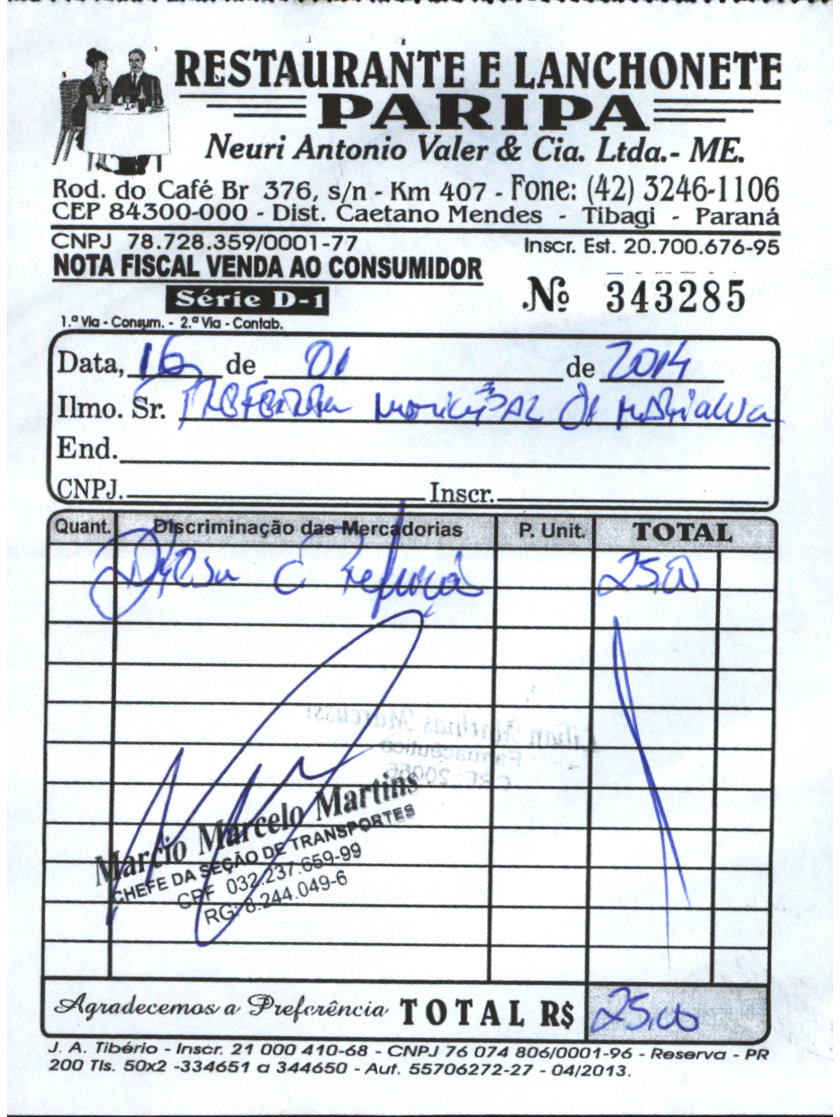 RESTAURANTE E LANCHONETE
PARIPA
Neuri Antonio Valer & Cia. Ltda.- ME.
Rod. do Café Br 376, s/n - Km 407 - Fone: (42) 3246-1106
CEP 84300-000 - Dist. Caetano Mendes - Tibagi - Paraná
CNPJ 78.728.359/0001-77 Inscr. Est. 20.700.676-95
NOTA FISCAL VENDA AO CONSUMIDOR
Série D-1 Nº 343285
1.ª Via - Consum. - 2.ª Via - Contab.
Data, 16 de 01 de 2014
Ilmo. Sr. Prefeitura Municipal de Marialva
End.
CNPJ. Inscr.
Quant. Discriminação das Mercadorias P. Unit. TOTAL
Despesa C Refeição 25,00
Lilian Mathias Marcussi
Farmacêutico
CRF 20056
Marcio Marcelo Martins
CHEFE DA SEÇÃO DE TRANSPORTES
CPF 032.237.659-99
RG: 8.244.049-6
Agradecemos a Preferência TOTAL R$ 25,00
J. A. Tibério - Inscr. 21 000 410-68 - CNPJ 76 074 806/0001-96 - Reserva - PR
200 Tls. 50x2 -334651 a 344650 - Aut. 55706272-27 - 04/2013.